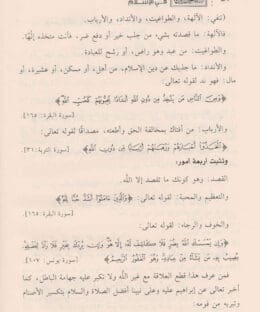 في الإسلام
(تنفي: الآلهة، والطواغيت، والأنداد، والأرباب.
فالآلهة: ما قصدته بشيء من جلب خير أو دفع ضر، فأنت متخذه إلهًا.
والطواغيت: من عبد وهو راض، أو رشح للعبادة
والأنداد: ما جذبك عن دين الإسلام، من أهل، أو مسكن، أو عشيرة، أو
مال: فهو ند لقوله تعالى:
﴿وَمِنَ النَّاسِ مَن يَتَّخِذُ مِن دُونِ اللَّهِ أَندَادًا يُحِبُّونَهُمْ كَحُبِّ اللَّهِ﴾
[سورة البقرة: ١٦٥].
والأرباب: من أفتاك بمخالفة الحق وأطعته، مصداقًا لقوله تعالى:
﴿اتَّخَذُوا أَحْبَارَهُمْ وَرُهْبَانَهُمْ أَرْبَابًا مِّن دُونِ اللَّهِ﴾ [سورة التوبة: ٣١].
وتثبت أربعة أمور:
القصد: وهو كونك ما تقصد إلا الله.
والتعظيم والمحبة: لقوله تعالى: ﴿وَالَّذِينَ آمَنُوا أَشَدُّ حُبًّا لِّلَّهِ﴾
[سورة البقرة: ١٦٥].
والخوف والرجاء: لقوله تعالى:
﴿وَإِن يَمْسَسْكَ اللَّهُ بِضُرٍّ فَلَا كَاشِفَ لَهُ إِلَّا هُوَ وَإِن يُرِدْكَ بِخَيْرٍ فَلَا رَادَّ لِفَضْلِهِ
يُصِيبُ بِهِ مَن يَشَاءُ مِنْ عِبَادِهِ وَهُوَ الْغَفُورُ الرَّحِيمُ﴾ [سورة يونس: ١٠٧].
فمن عرف هذا قطع العلاقة مع غير الله ولا تكبر عليه جهامة الباطل، كما
أخبر تعالى عن إبراهيم عليه وعلى نبينا أفضل الصلاة والسلام بتكسير الأصنام
وتبريه من قومه: